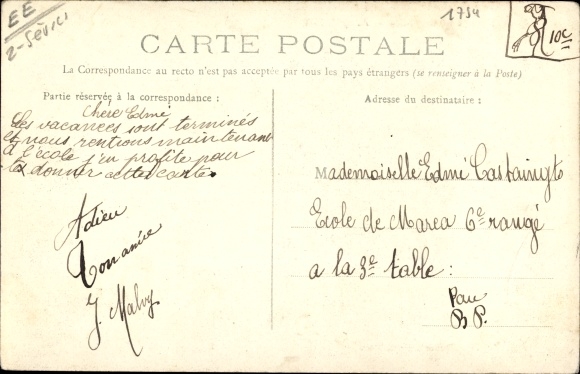 EE
2-Sévici
1754
10c
CARTE POSTALE
La Correspondance au recto n'est pas acceptée par tous les pays étrangers (se renseigner à la Poste)
Partie réservée à la correspondance :
Chére Edmé
Les vacances sont terminés
et nous rentrions maintenant
a l'école j'en profite pour
te donner cette carte
Adieu
Ton amie
J. Malvy
Adresse du destinataire :
Mademoiselle Edmé Castaingts
Ecole de Marca 6e rangé
a la 3e table :
Pau
B P.